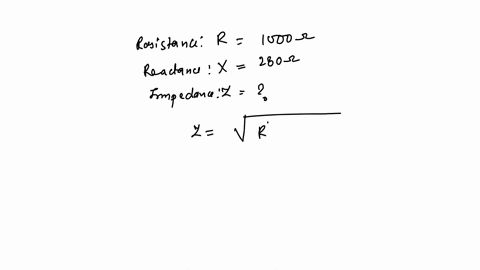 Resistance: R = 1000 Ω
Reactance: X = 280 Ω
Impedance: Z = ?
Z = √R